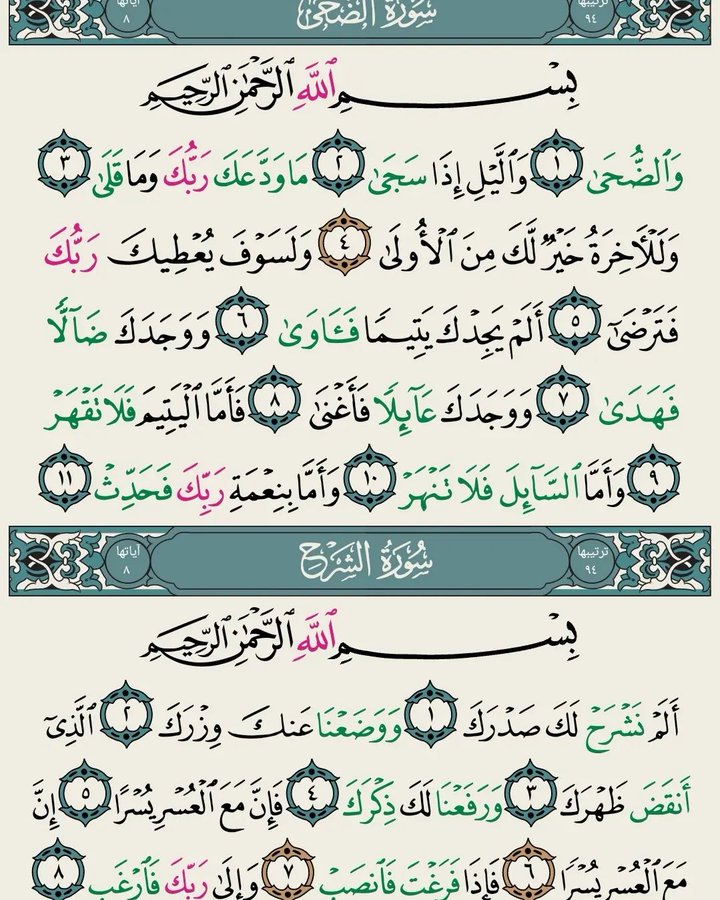 ترتيبها ٩٤ سُورَةُ الضُّحَىٰ آياتها ٨
بِسْمِ ٱللَّهِ ٱلرَّحْمَٰنِ ٱلرَّحِيمِ
وَٱلضُّحَىٰ ١ وَٱلَّيْلِ إِذَا سَجَىٰ ٢ مَا وَدَّعَكَ رَبُّكَ وَمَا قَلَىٰ ٣
وَلَلْـَٔاخِرَةُ خَيْرٌ لَّكَ مِنَ ٱلْأُولَىٰ ٤ وَلَسَوْفَ يُعْطِيكَ رَبُّكَ
فَتَرْضَىٰٓ ٥ أَلَمْ يَجِدْكَ يَتِيمًا فَـَٔاوَىٰ ٦ وَوَجَدَكَ ضَآلًّا
فَهَدَىٰ ٧ وَوَجَدَكَ عَآئِلًا فَأَغْنَىٰ ٨ فَأَمَّا ٱلْيَتِيمَ فَلَا تَقْهَرْ
٩ وَأَمَّا ٱلسَّآئِلَ فَلَا تَنْهَرْ ١٠ وَأَمَّا بِنِعْمَةِ رَبِّكَ فَحَدِّثْ ١١
ترتيبها ٩٤ سُورَةُ الشَّرْحِ آياتها ٨
بِسْمِ ٱللَّهِ ٱلرَّحْمَٰنِ ٱلرَّحِيمِ
أَلَمْ نَشْرَحْ لَكَ صَدْرَكَ ١ وَوَضَعْنَا عَنكَ وِزْرَكَ ٢ ٱلَّذِىٓ
أَنقَضَ ظَهْرَكَ ٣ وَرَفَعْنَا لَكَ ذِكْرَكَ ٤ فَإِنَّ مَعَ ٱلْعُسْرِ يُسْرًا ٥ إِنَّ
مَعَ ٱلْعُسْرِ يُسْرًا ٦ فَإِذَا فَرَغْتَ فَٱنصَبْ ٧ وَإِلَىٰ رَبِّكَ فَٱرْغَب ٨